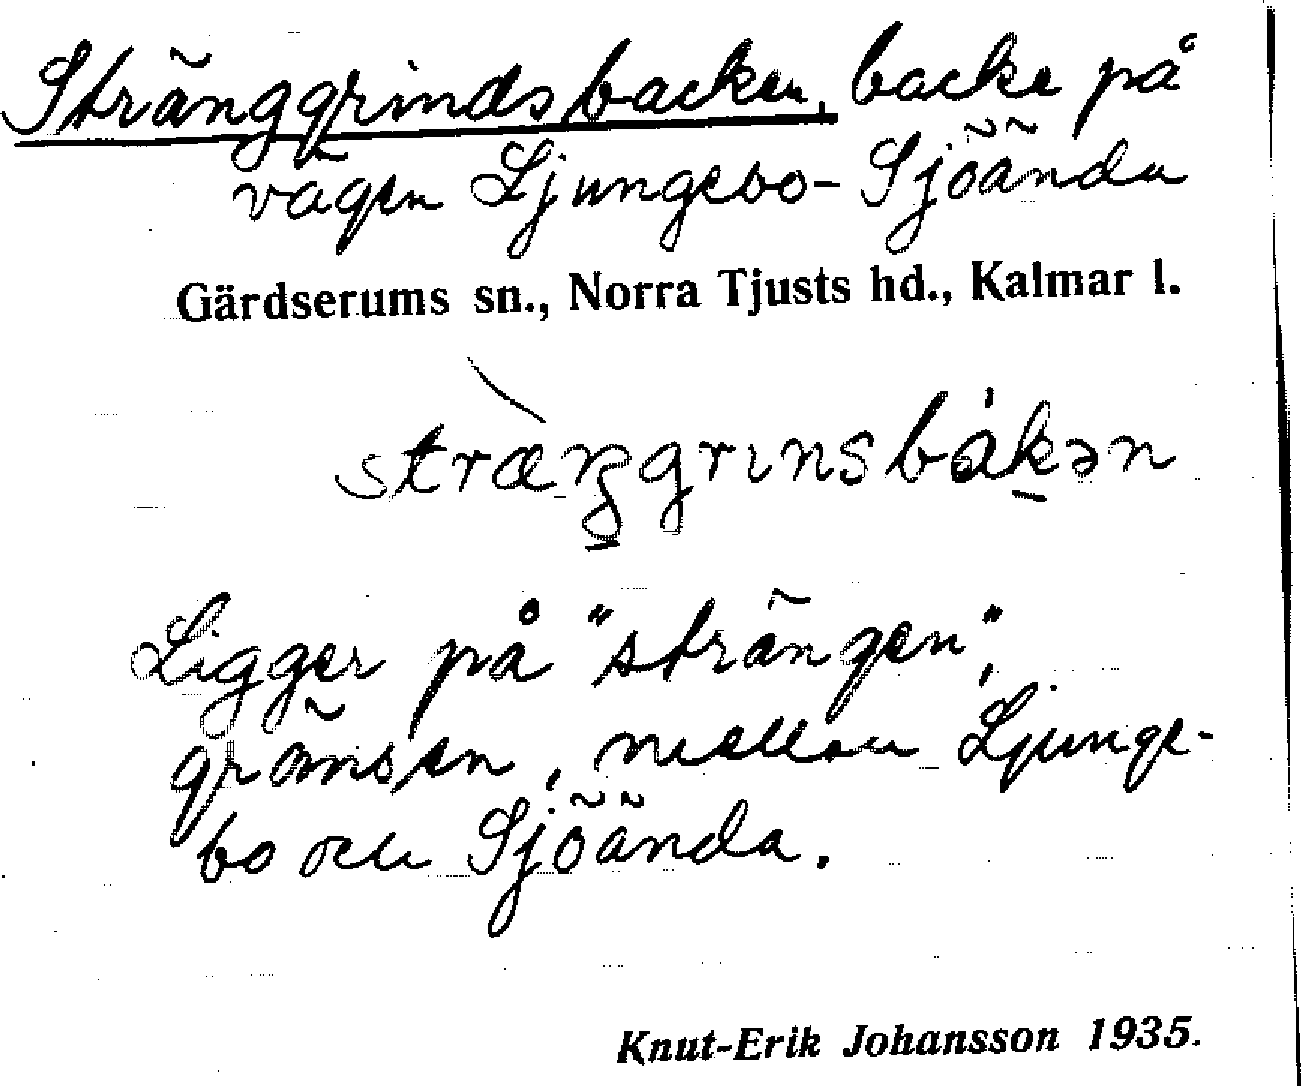 Stränggrindsbacken, backe på
vägen Ljungebo-Sjöända
Gärdserums sn., Norra Tjusts hd., Kalmar l.
stræŋgrɩnsbákən
Ligger på "strängen",
gränsen, mellan Ljunge-
bo och Sjöända.
Knut-Erik Johansson 1935.